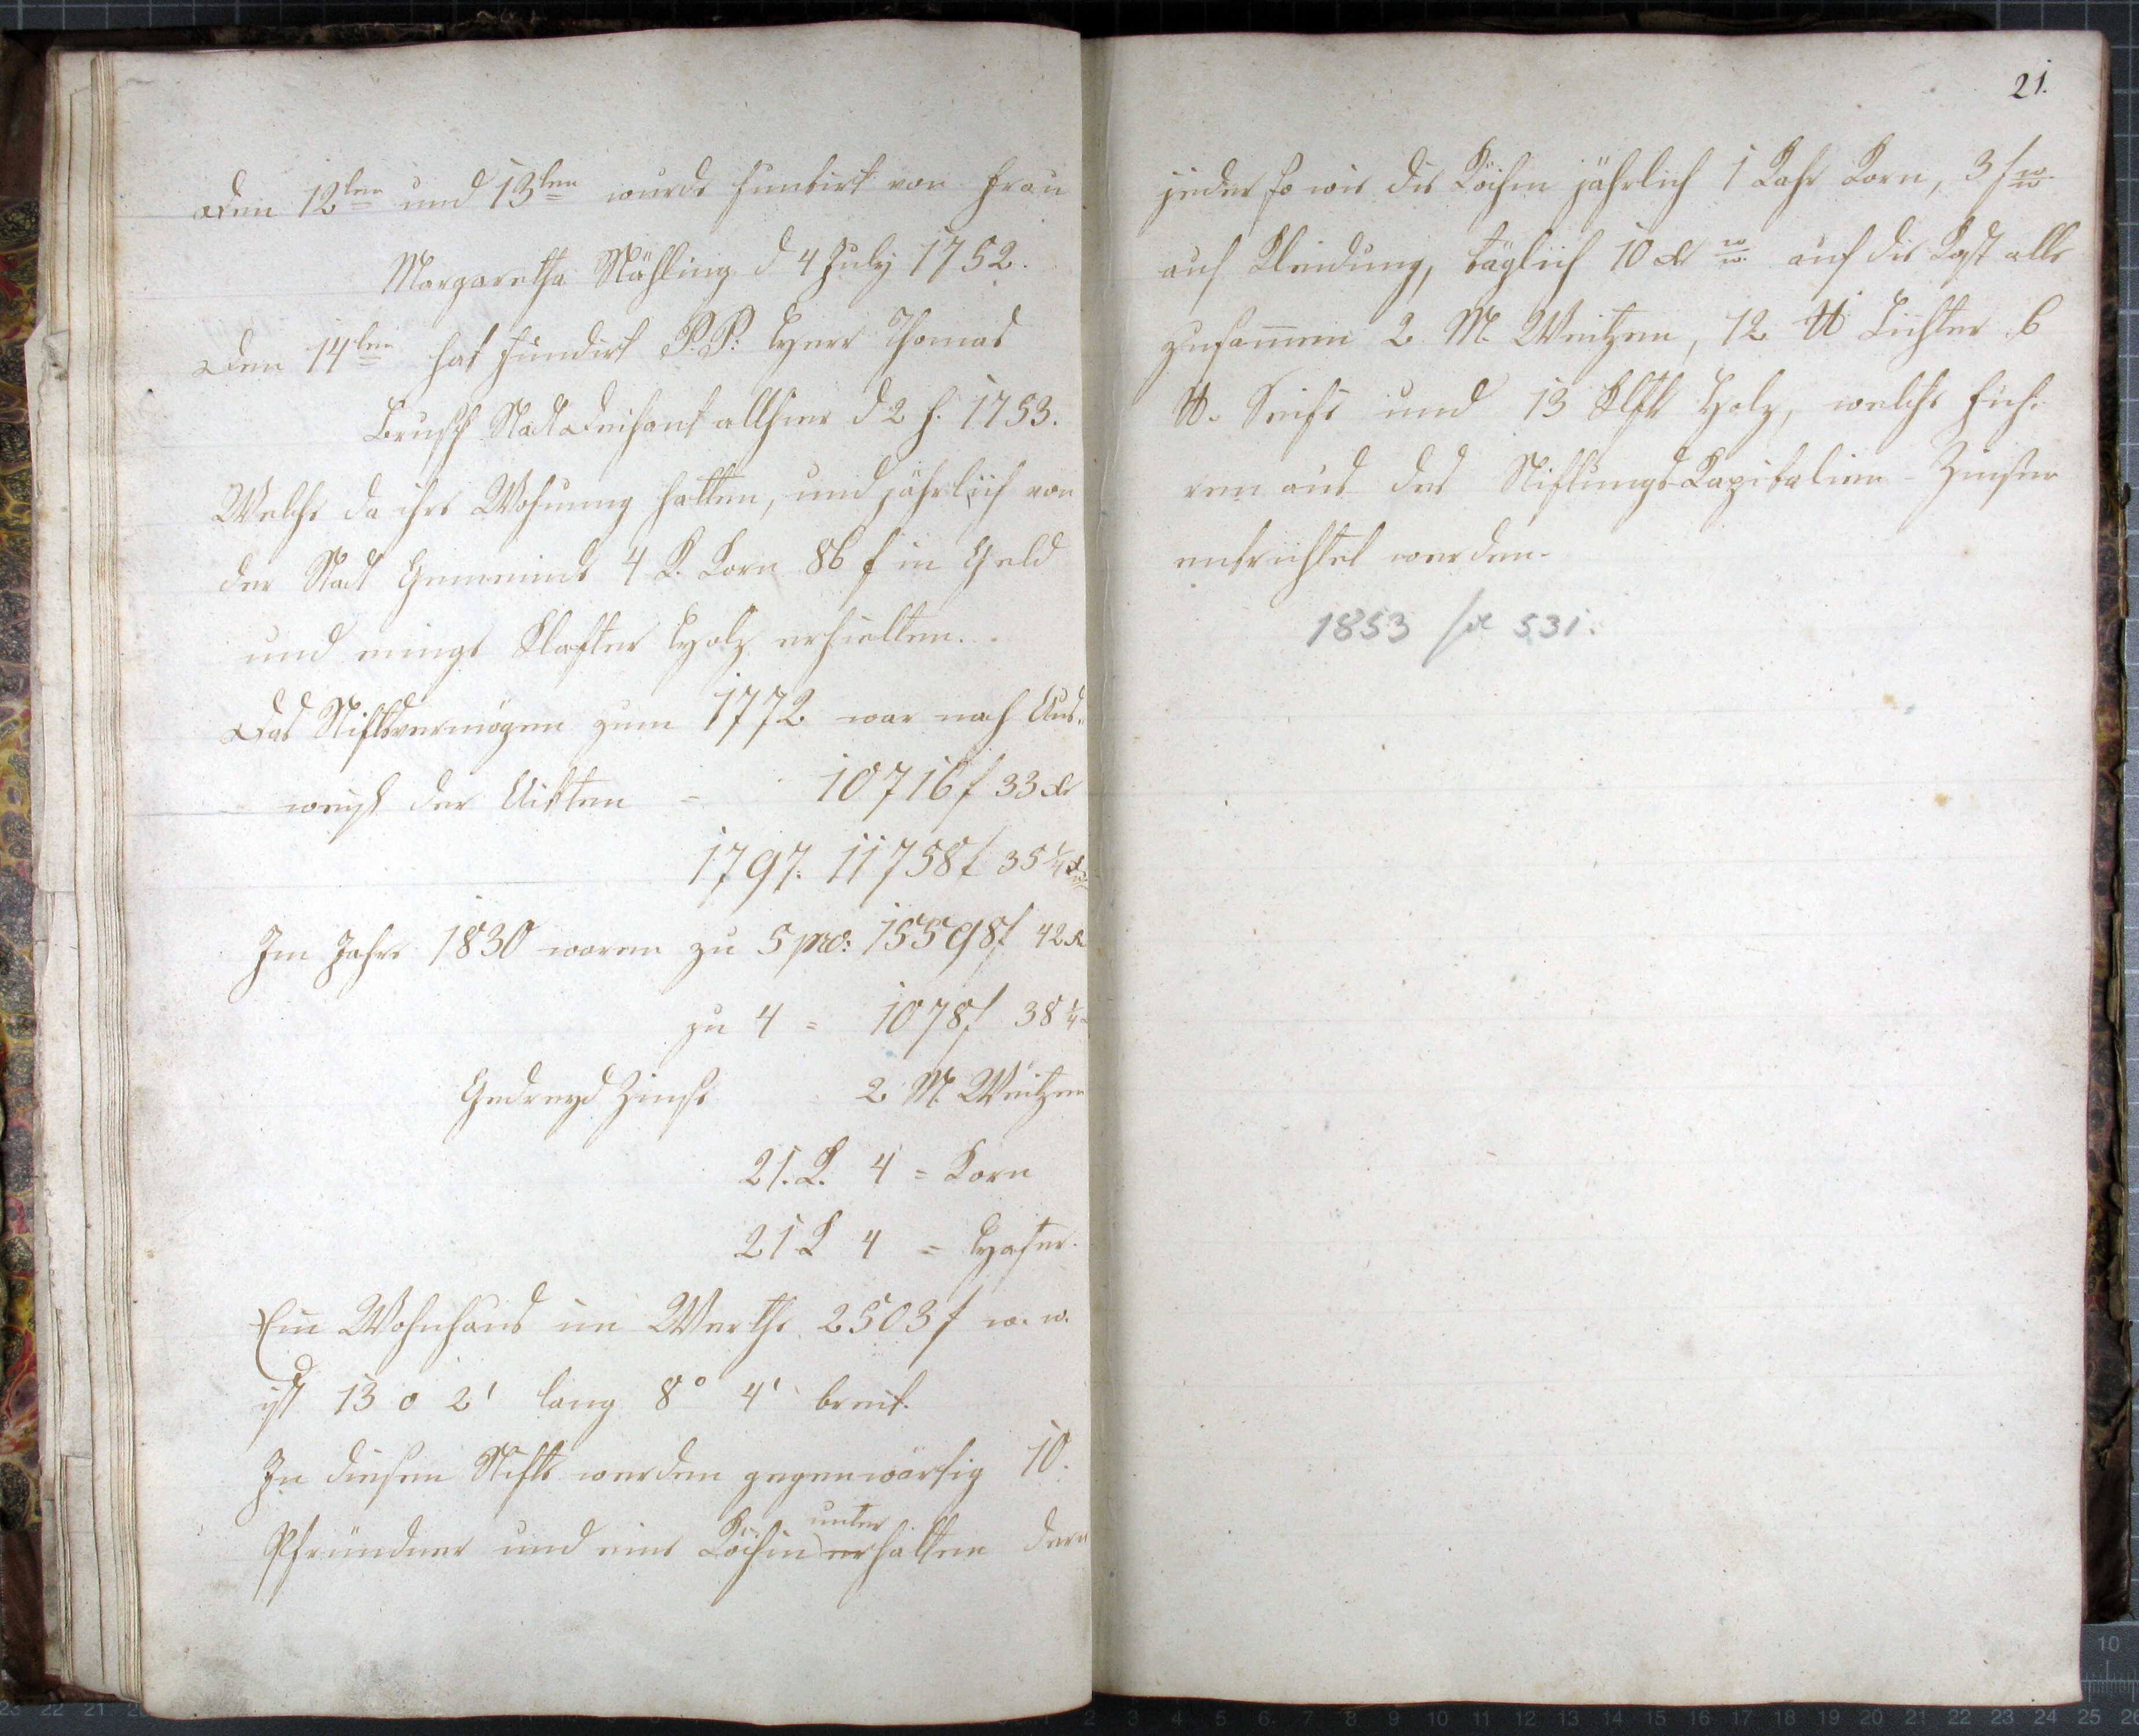 Den 12ten und 13ten wurde fundirt von Frau
Margaretha Mähling d 4 July 1752.
Den 14ten hat fundirt P.P: Herr Thomas
Brusch Stadt Dechant allhier d 2 f. 1753.
Welche da ihre Wohnung hatten, und jährlich von
der Stadt Gemeinde 4 K. Korn 86 f in Geld
und einige Klafter Holz erhielten.
Das Stiftsvermögen zum 1772 war nach Aus-
weiß der Ackten = 10716 f 33 xr
1797. 11758 f 35 1/4 xr
Im Jahre 1830 waren zu 5 pro: 15598 f 42 xr
zu 4 = 1078 f 38 1/4
Gedreyd Zinse 2 M. Weitzen
21. K. 4 = Korn
21 K 4 = Hafer.
Ein Wohnhaus im Werthe 2503 f w. w.
ist 13 o 2' lang 8° 4' breit.
In diesem Stifte werden gegenwärtig 10.
Pfründner und eine Köchin unterhalten dere
21.
jeder so wie die Köchin jährlich 1 Kahr Korn, 3 f w. w.
auf Kleidung, täglich 10 xr w. w. auf die Kost alle
zusammen 2 M. Weitzen, 12 ℔ Lichter 6
℔. Seife und 13 Klftr Holz, welche
ren aus des Stiftungs Kapitalien-Zinsen
entrichtet werden.
1853 531.